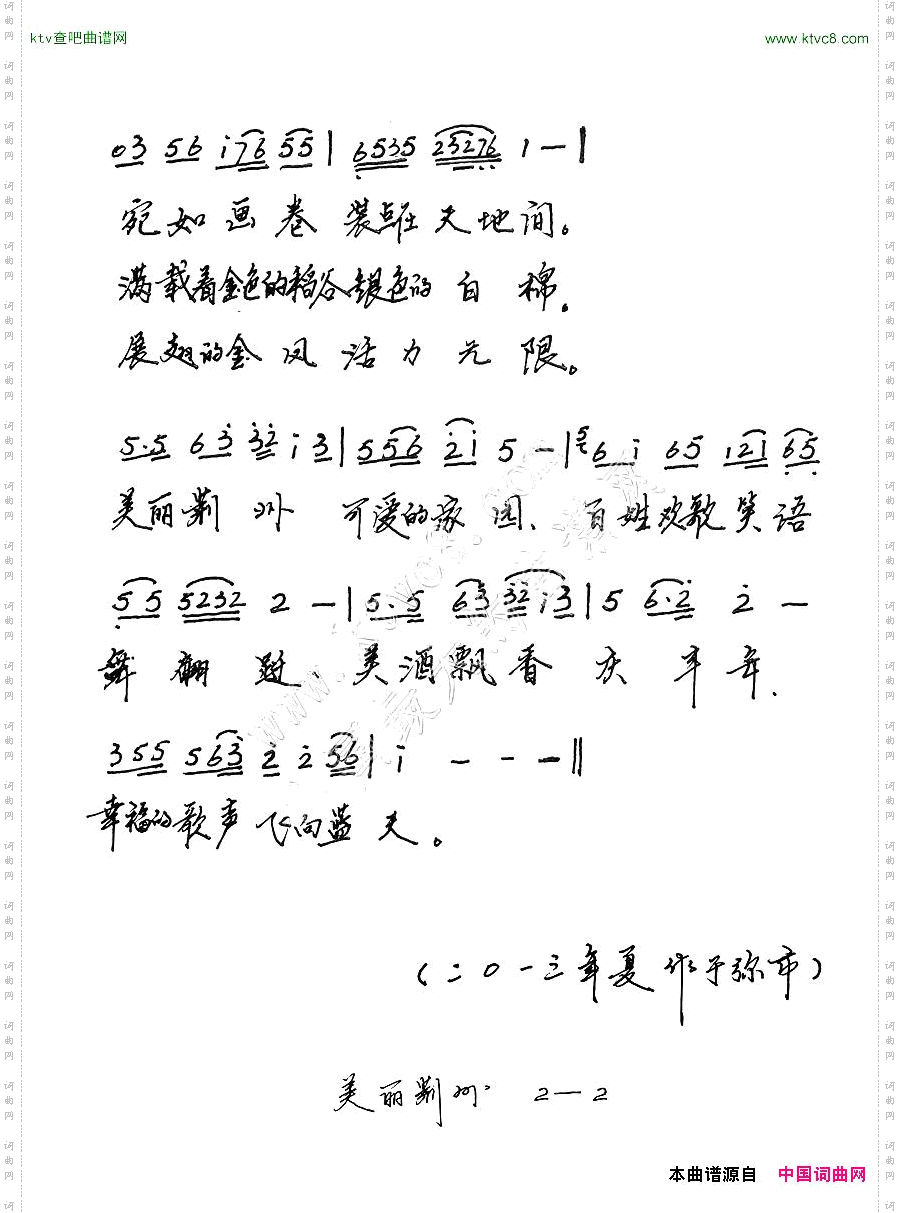 ktv查吧曲谱网 www.ktvc8.com
03 56 i76 55 | 6535 23276 1 — |
宛如画卷 装点在天地间。
满载着金色的稻谷银色的白棉。
展翅的金凤活力无限。
5·5 63 32 i 3 | 556 2i 5 — | 6 i 65 i2i 65
美丽荆州 可爱的家园、百姓欢歌笑语
55 5232 2 — | 5·5 63 32i3 | 5 6·2 2 —
舞翩跹、美酒飘香庆丰年.
355 563 2 2 56 | i — — — ‖
幸福的歌声飞向蓝天。
(二〇一三年夏作于弥市)
美丽荆州 2—2
本曲谱源自 中国词曲网